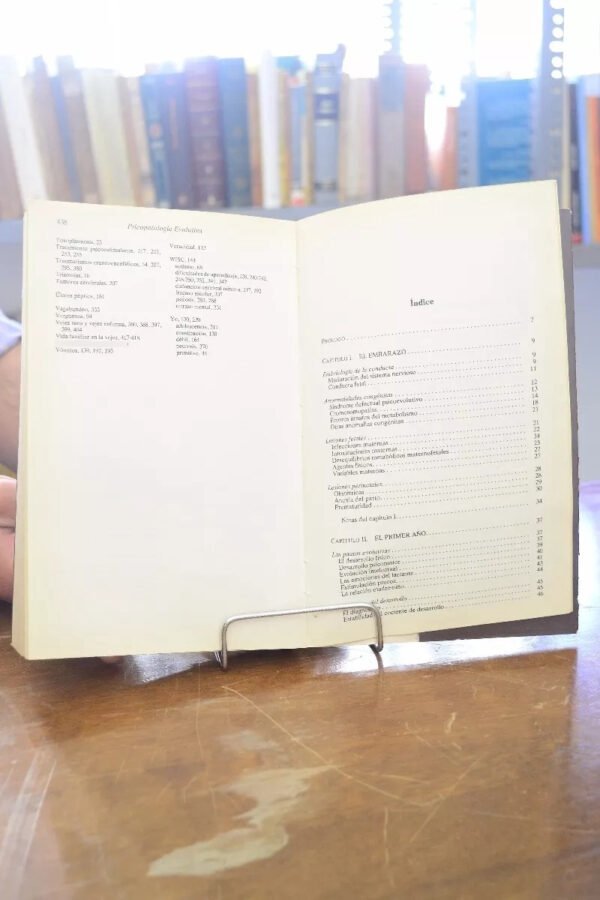 438
Psicopatología Evolutiva
Traumatismos craneoencefálicos, 34, 207,
Tumores cerebrales, 207
Ulcera péptica, 181
Vagabundeo, 332
Vergüenza, 94
Vejez sana y vejez enferma, 380, 388, 397,
399, 404
Vida familiar en la vejez,
Vómitos, 139, 192, 195
Veracidad, 112
WISC, 144
autismo, 68
dificultades de aprendizaje,
disfunción cerebral mínima, 207, 292
fracaso escolar, 337
psicosis,
retraso mental,
Yo,
adolescencia,
constitución,
débil,
psicosis,
primitivo,
Índice
PRÓLOGO 7
CAPÍTULO I. EL EMBARAZO 9
Embriología de la conducta 9
Maduración del sistema nervioso 9
Conducta fetal 11
Anormalidades congénitas 12
Síndrome defectual psicoevolutivo 13
Cromosomopatías 14
Errores innatos del metabolismo 18
Otras anomalías congénitas 21
Lesiones fetales 21
Infecciones maternas 22
Intoxicaciones maternas 24
Desequilibrios metabólicos maternofetales 25
Agentes físicos 27
Variables maternas 27
Lesiones perinatales 28
Obstétricas 28
Anoxia del parto 29
Prematuridad 30
Notas del capítulo I 34
CAPÍTULO II. EL PRIMER AÑO 37
Las pautas evolutivas 37
El desarrollo físico 37
Desarrollo psicomotor 39
Evolución intelectual 40
Las emociones del lactante 41
Estimulación precoz 43
La relación madre-hijo 44
del desarrollo 45
El diagnóstico 45
Estabilidad del cociente de desarrollo 46